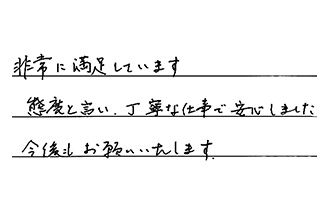 非常に満足しています
態度と言い、丁寧な仕事で安心しました
今後もお願いいたします。